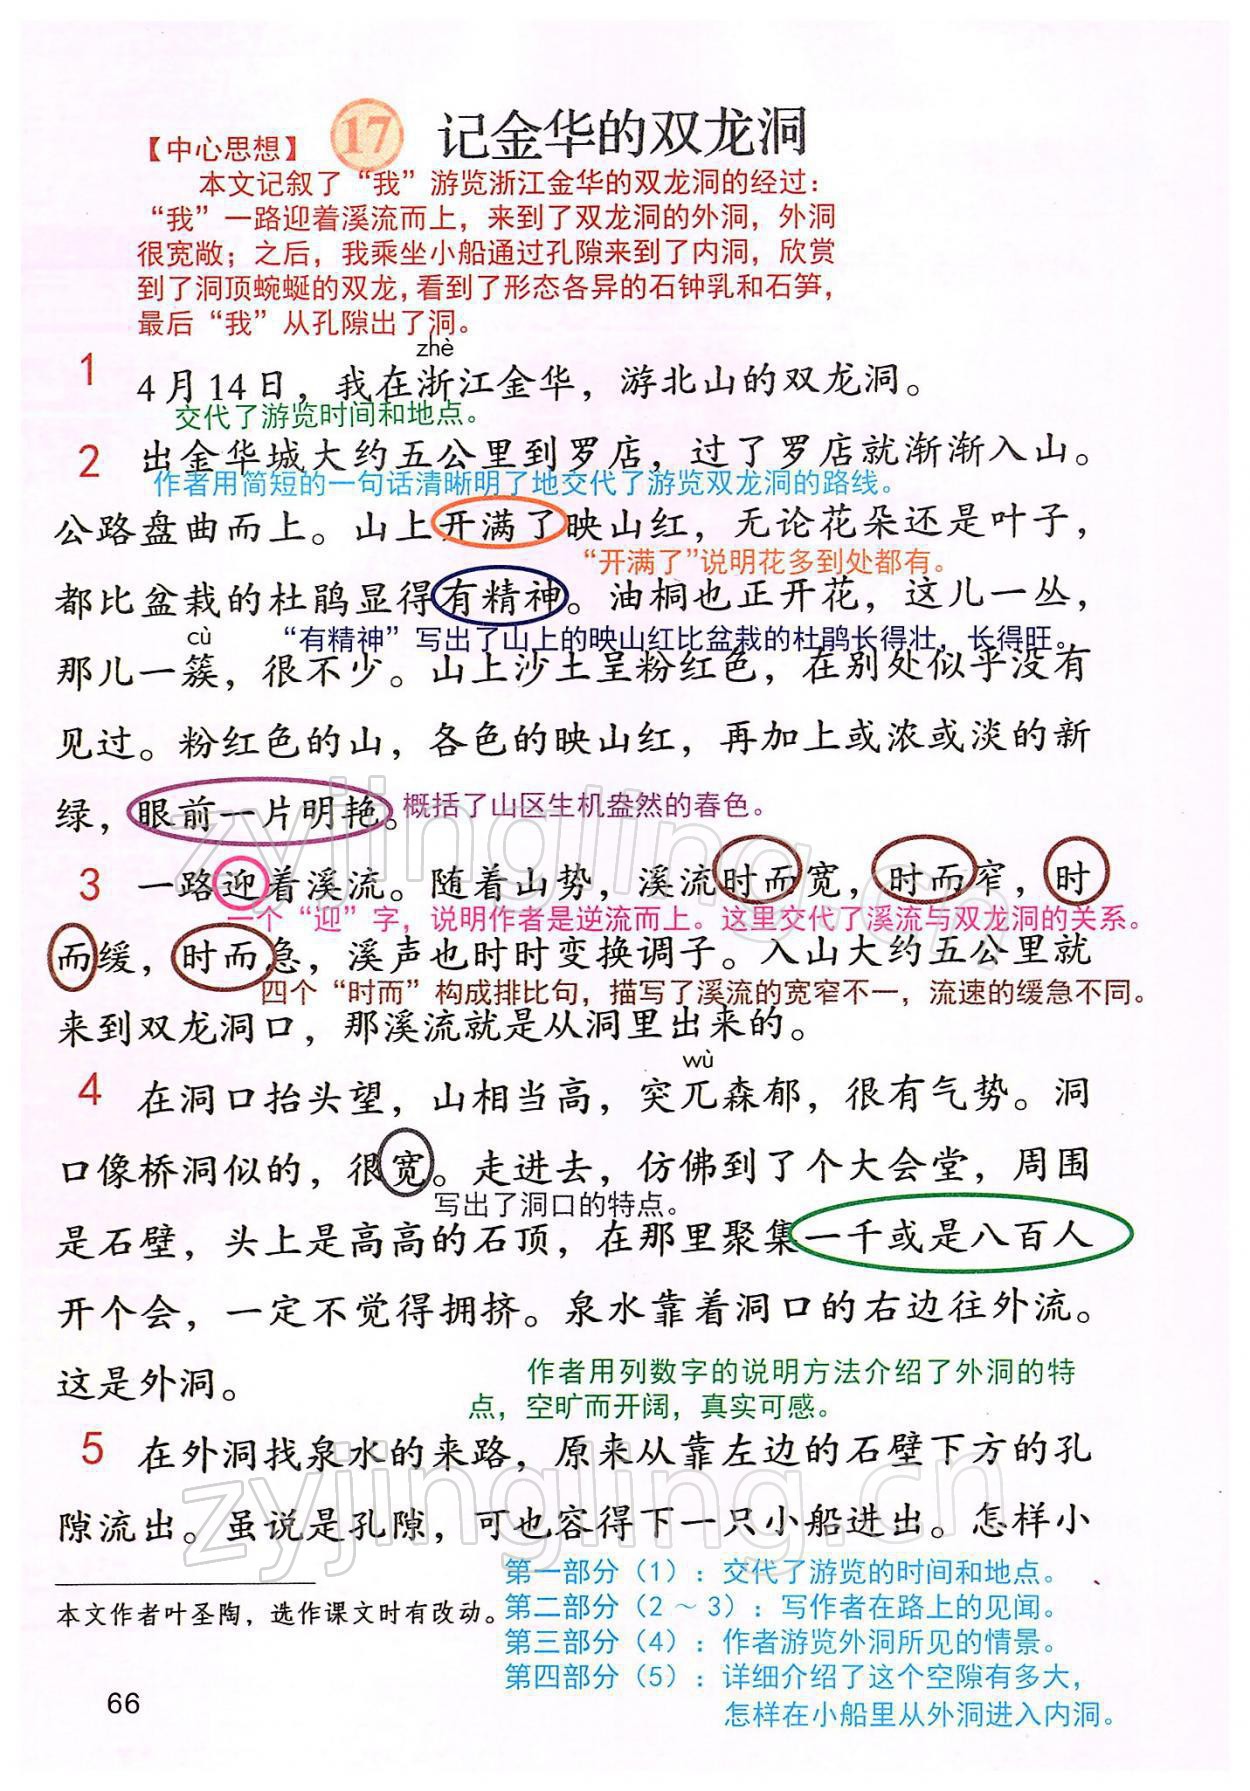 17 记金华的双龙洞
【中心思想】
本文记叙了“我”游览浙江金华的双龙洞的经过：
“我”一路迎着溪流而上，来到了双龙洞的外洞，外洞
很宽敞；之后，我乘坐小船通过孔隙来到了内洞，欣赏
到了洞顶蜿蜒的双龙，看到了形态各异的石钟乳和石笋，
最后“我”从孔隙出了洞。
zhè
1 4月14日，我在浙江金华，游北山的双龙洞。
交代了游览时间和地点。
2 出金华城大约五公里到罗店，过了罗店就渐渐入山。
作者用简短的一句话清晰明了地交代了游览双龙洞的路线。
公路盘曲而上。山上开满了映山红，无论花朵还是叶子，
“开满了”说明花多到处都有。
都比盆栽的杜鹃显得有精神。油桐也正开花，这儿一丛，
cù
“有精神”写出了山上的映山红比盆栽的杜鹃长得壮，长得旺。
那儿一簇，很不少。山上沙土呈粉红色，在别处似乎没有
见过。粉红色的山，各色的映山红，再加上或浓或淡的新
绿，眼前一片明艳。
概括了山区生机盎然的春色。
3 一路迎着溪流。随着山势，溪流时而宽，时而窄，时
一个“迎”字，说明作者是逆流而上。这里交代了溪流与双龙洞的关系。
而缓，时而急，溪声也时时变换调子。入山大约五公里就
四个“时而”构成排比句，描写了溪流的宽窄不一，流速的缓急不同。
来到双龙洞口，那溪流就是从洞里出来的。
wù
4 在洞口抬头望，山相当高，突兀森郁，很有气势。洞
口像桥洞似的，很宽。走进去，仿佛到了个大会堂，周围
写出了洞口的特点。
是石壁，头上是高高的石顶，在那里聚集一千或是八百人
开个会，一定不觉得拥挤。泉水靠着洞口的右边往外流。
这是外洞。
作者用列数字的说明方法介绍了外洞的特
点，空旷而开阔，真实可感。
5 在外洞找泉水的来路，原来从靠左边的石壁下方的孔
隙流出。虽说是孔隙，可也容得下一只小船进出。怎样小
本文作者叶圣陶，选作课文时有改动。
第一部分（1）：交代了游览的时间和地点。
第二部分（2～3）：写作者在路上的见闻。
第三部分（4）：作者游览外洞所见的情景。
第四部分（5）：详细介绍了这个空隙有多大，
怎样在小船里从外洞进入内洞。
66
zyjingling.cn
zyjingling.cn